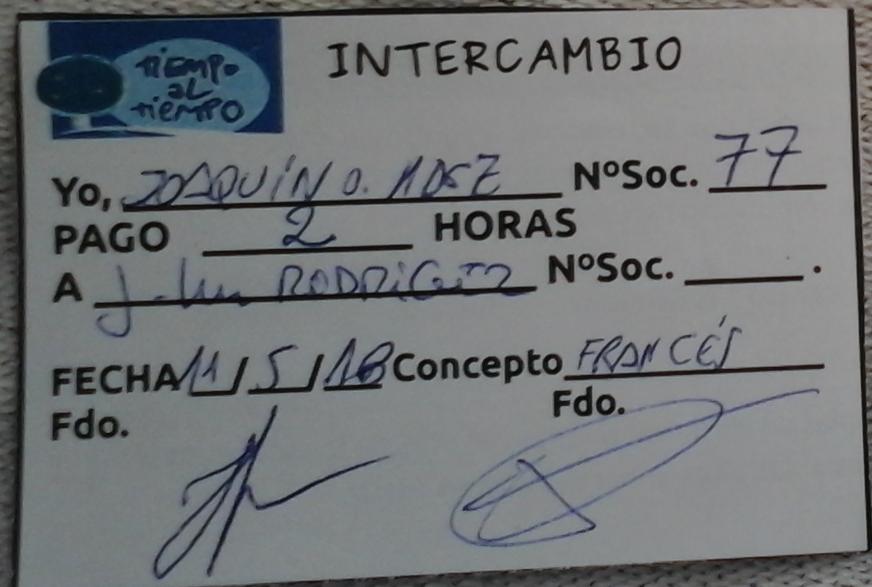 TiEMPO
aL
TiEMPO
INTERCAMBIO
Yo, JOAQUÍN O. NºSoc. 77
PAGO 2 HORAS
A RODRIGUEZ NºSoc. .
FECHA 11/5/18 Concepto FRANCÉS
Fdo. Fdo.